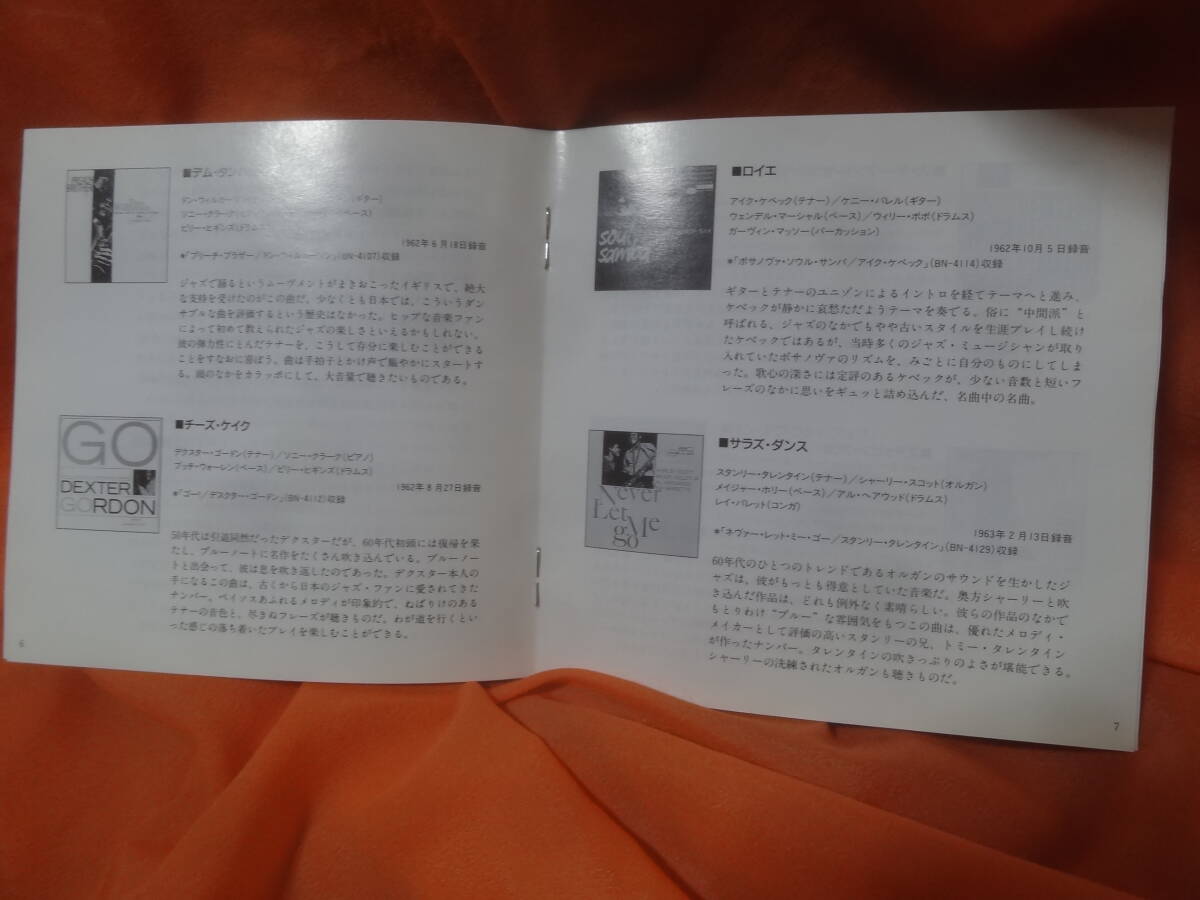 ■デム・ダン
ドン・ウィルカー
ギター)
ソニー・クラーク(ピ
ベース)
ビリー・ヒギンズ(ドラムス
1962年6月18日録音
*「プリーチ・ブラザー/ドン・ウィルカーソン」(BN-4107)収録
ジャズで踊るというムーヴメントがまきおこったイギリスで、絶大
な支持を受けたのがこの曲だ。少なくとも日本では、こういうダン
サブルな曲を評価するという歴史はなかった。ヒップな音楽ファン
によって初めて教えられたジャズの楽しさといえるかもしれない。
彼の弾力性にとんだテナーを、こうして存分に楽しむことができる
ことをすなおに喜ぼう。曲は手拍子とかけ声で賑やかにスタートす
る。頭のなかをカラッポにして、大音量で聴きたいものである。
GO
DEXTER
GORDON
■チーズ・ケイク
デクスター・ゴードン(テナー)/ソニー・クラーク(ピアノ)
ブッチ・ウォーレン(ベース)/ビリー・ヒギンズ(ドラムス)
1962年8月27日録音
*「ゴー!/デクスター・ゴードン」(BN-4112)収録
50年代は引退同然だったデクスターだが、60年代初頭には復帰を果
たし、ブルーノートに名作をたくさん吹き込んでいる。ブルーノー
トと出会って、彼は息を吹き返したのであった。デクスター本人の
手になるこの曲は、古くから日本のジャズ・ファンに愛されてきた
ナンバー。ペイソスあふれるメロディが印象的で、ねばりけのある
テナーの音色と、尽きぬフレーズが聴きものだ。わが道を行くとい
った感じの落ち着いたプレイを楽しむことができる。
6
soul
samba
■ロイエ
アイク・ケベック(テナー)/ケニー・バレル(ギター)
ウェンデル・マーシャル(ベース)/ウィリー・ボボ(ドラムス)
ガーヴィン・マッソー(パーカッション)
1962年10月5日録音
*「ボサノヴァ・ソウル・サンバ/アイク・ケベック」(BN-4114)収録
ギターとテナーのユニゾンによるイントロを経てテーマへと進み、
ケベックが静かに哀愁ただようテーマを奏でる。俗に“中間派”と
呼ばれる、ジャズのなかでもやや古いスタイルを生涯プレイし続け
たケベックではあるが、当時多くのジャズ・ミュージシャンが取り
入れていたボサノヴァのリズムを、みごとに自分のものにしてしま
った。歌心の深さには定評のあるケベックが、少ない音数と短いフ
レーズのなかに思いをギュッと詰め込んだ、名曲中の名曲。
Never
Let
Me
go
■サラズ・ダンス
スタンリー・タレンタイン(テナー)/シャーリー・スコット(オルガン)
メイジャー・ホリー(ベース)/アル・ヘアウッド(ドラムス)
レイ・バレット(コンガ)
1963年2月13日録音
*「ネヴァー・レット・ミー・ゴー/スタンリー・タレンタイン」(BN-4129)収録
60年代のひとつのトレンドであるオルガンのサウンドを生かしたジ
ャズは、彼がもっとも得意としていた音楽だ。奥方シャーリーと吹
き込んだ作品は、どれも例外なく素晴らしい。彼らの作品のなかで
もとりわけ“ブルー”な雰囲気をもつこの曲は、優れたメロディ・
メイカーとして評価の高いスタンリーの兄、トミー・タレンタイン
が作ったナンバー。タレンタインの吹きっぷりのよさが堪能できる。
シャーリーの洗練されたオルガンも聴きものだ。
7